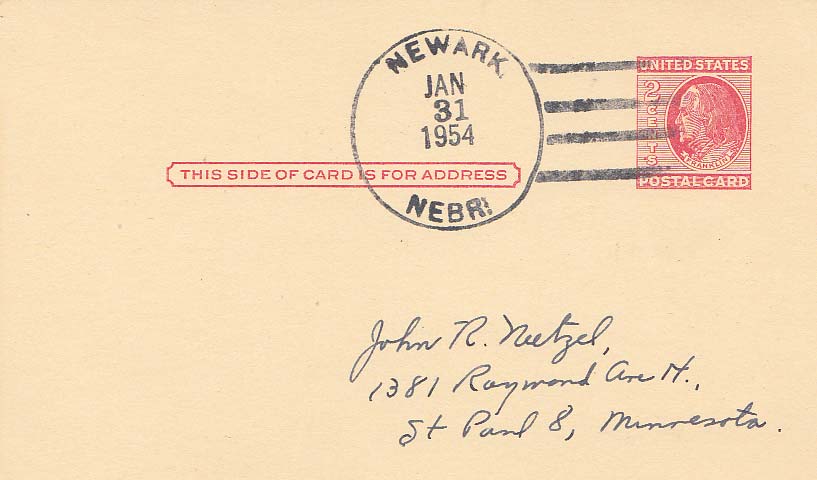 NEWARK.
JAN
31
1954
NEBR.
UNITED STATES
2 CENTS
FRANKLIN
POSTAL CARD
THIS SIDE OF CARD IS FOR ADDRESS
John R. Neetzel,
1381 Raymond Ave N.,
St Paul 8, Minnesota.